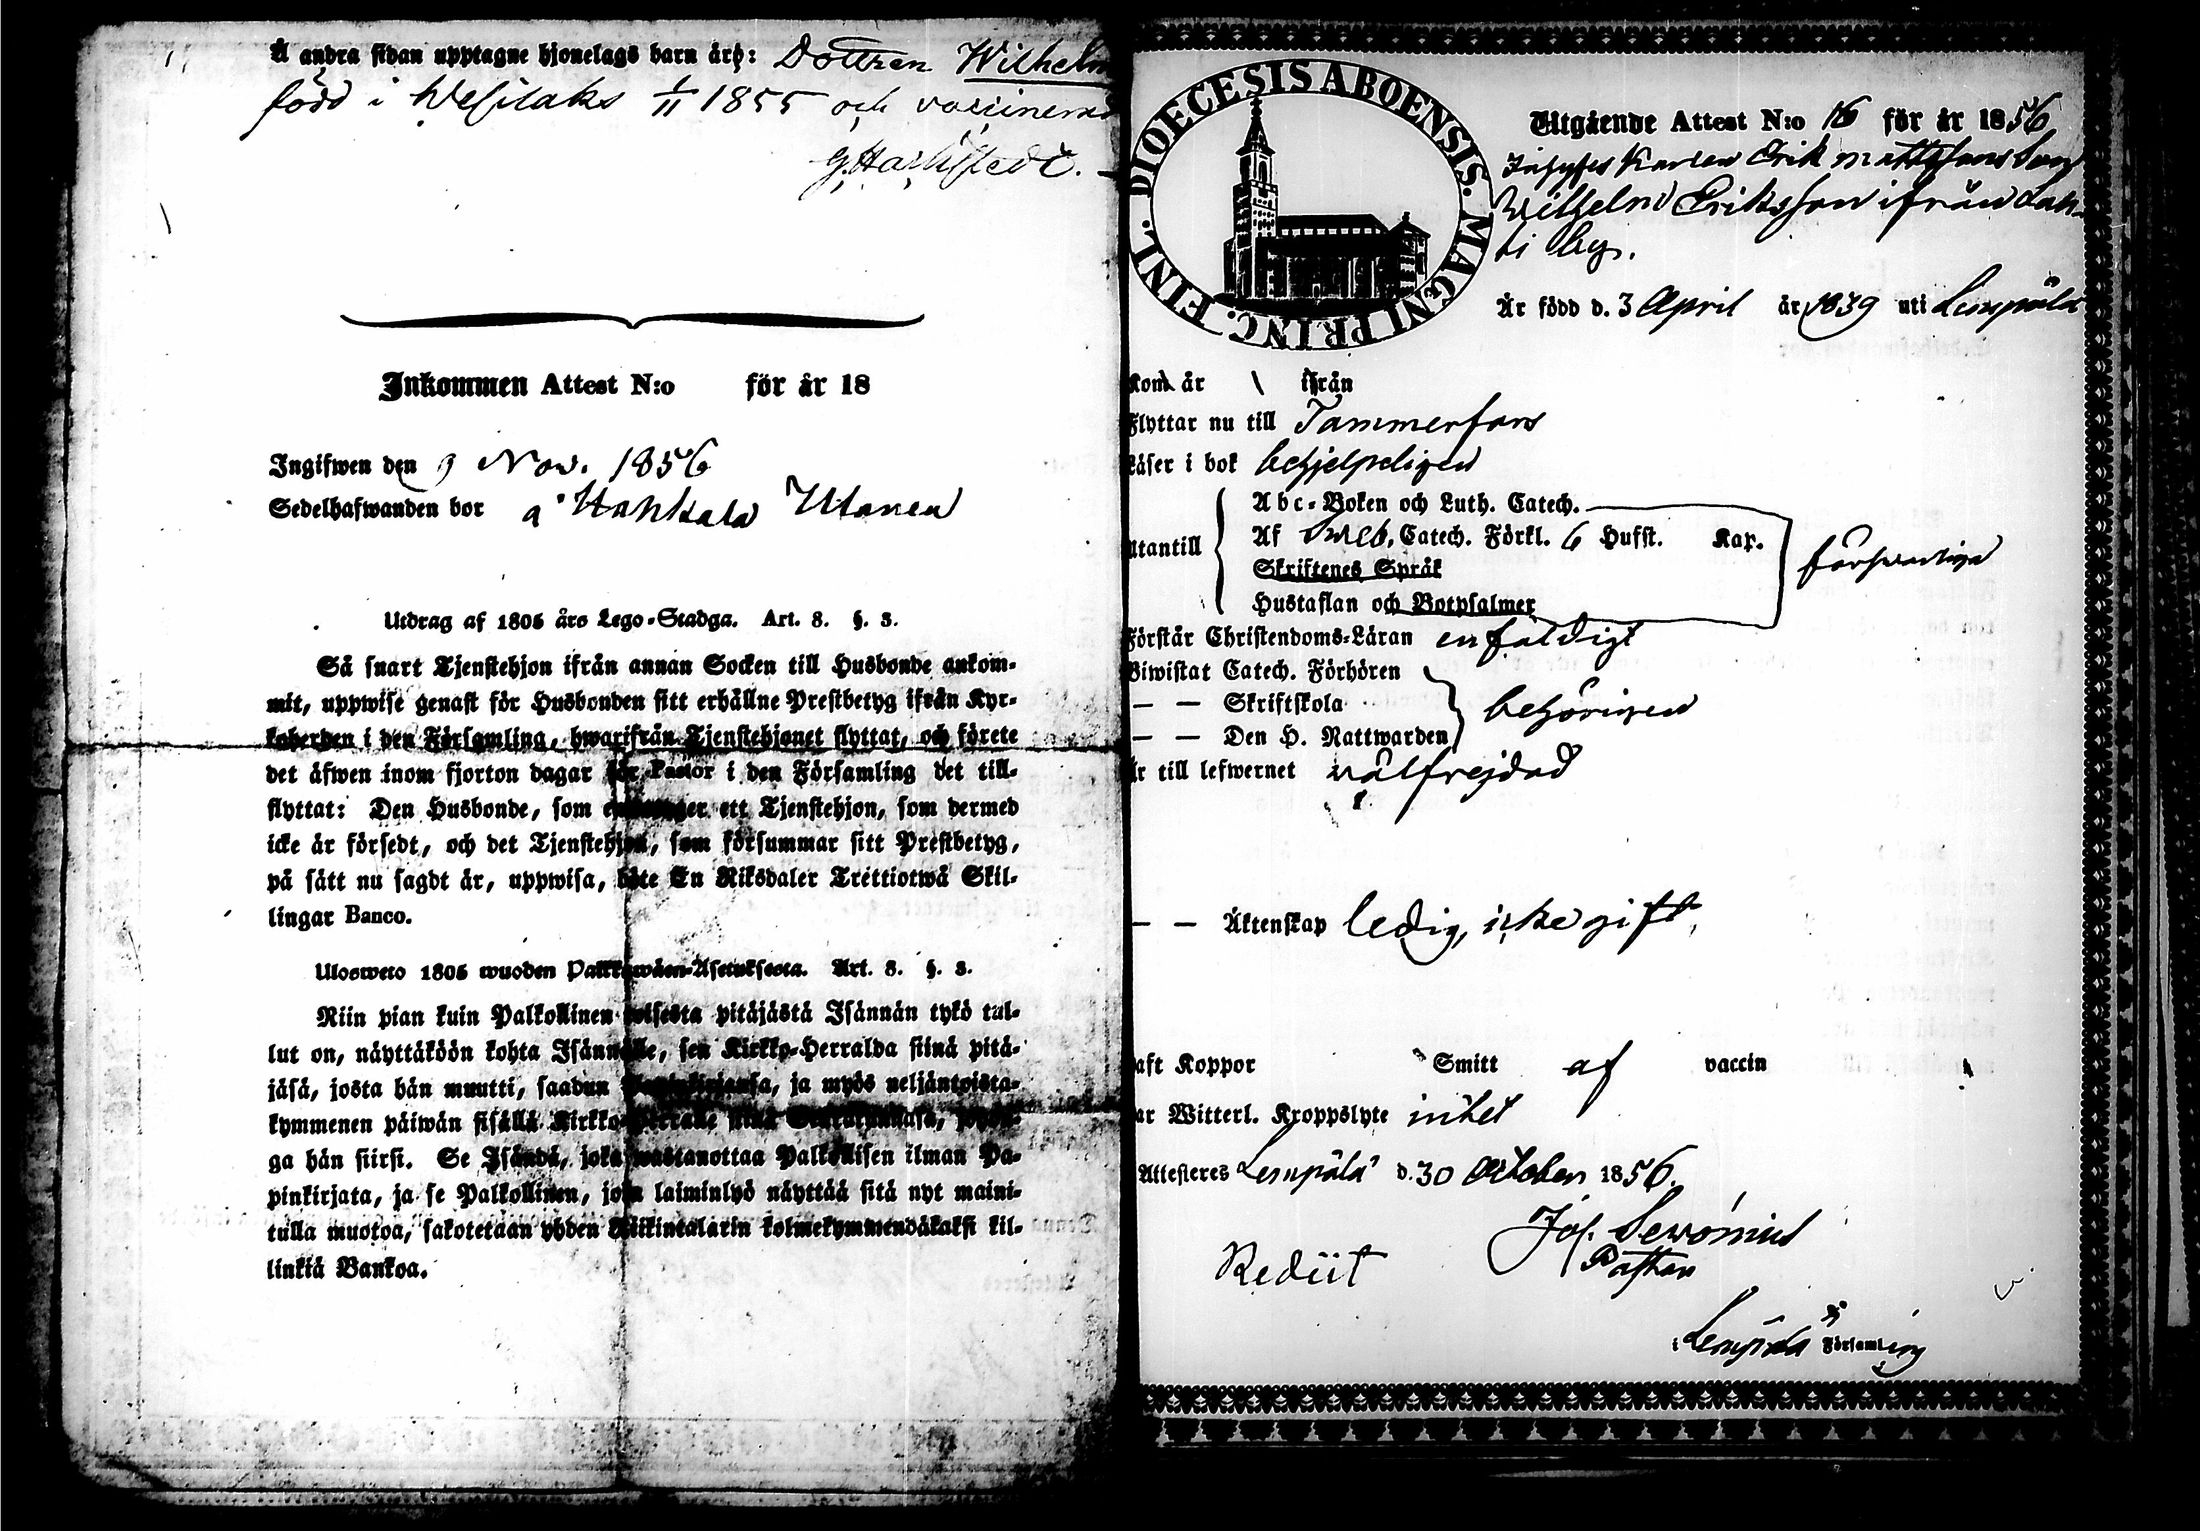 Å andra sidan upptagne hjonelags barn äro: Dottren Wilhelm
född i Wesilaks 1/11 1855 och vaccinerad
Inkommen Attest N:o för år 18
Ingifwen den 9 Nov. 1856
Sedelhafwanden bor å Hahkala
Utdrag af 1805 års Lego-Stadga. Art. 8. §. 3.
Så snart Tjenstehjon ifrån annan Socken till Husbonde ankom-
mit, uppwise genast för Husbonden sitt erhållne Prestbetyg ifrån Kyr-
koherden i den Församling, hwarifrån Tjenstehjonet flyttat, och förete
det äfwen inom fjorton dagar för Pastor i den Församling det till-
flyttat: Den Husbonde, som ett Tjenstehjon, som dermed
icke är försedt, och det Tjenstehjon, som försummar sitt Prestbetyg,
på sätt nu sagdt är, uppwisa, böte En Riksdaler Trettiotwå Skil-
lingar Banco.
Ulosweto 1805 wuoden Palkkawäen-Asetuksesta. Art. 8. §. 3.
Niin pian kuin Palkollinen toisesta pitäjästä Isännän tykö tul-
lut on, näyttäköön kohta Isännälle, sen Kirkko-Herralda siinä pitä-
jäsä, josta hän muutti, saadun Papinkirjansa, ja myös neljäntoista-
kymmenen päiwän sisällä Kirkko-Herralle siinä Seurakunnasa, johon-
ga hän siirsi. Se Isändä, joka wastanottaa Palkollisen ilman Pa-
pinkirjata, ja se Palkollinen, joka laiminlyö näyttää sitä nyt maini-
tulla muotoa, sakotetaan yhden Riikintalarin kolmekymmendäkaksi kil-
linkiä Bankoa.
DIOECESIS ABOENSIS. MAGNI PRINC. FINL.
Utgående Attest N:o 16 för år 1856
Erik Mattssons Son
Wilhelm Eriksson ifrån Lah-
ti by.
Är född d. 3 April år 1839 uti Lempälä
Kom år ifrån
Flyttar nu till Tammerfors
Läser i bok behjelpeligen
Abc-Boken och Luth. Catech.
Utantill Af Sweb. Catech. Förkl. 6 Hufst. Kap. försvarliga
Skriftenes Språk
Hustaflan och Botpsalmer
Förstår Christendoms-Läran enfaldigt
Biwistat Catech. Förhören
— — Skriftskola behörigen
— — Den H. Nattwarden
Är till lefwernet välfrejdad
— — Äktenskap ledig, icke gift
aft Koppor Smitt af vaccin
ar Witterl. Kroppslyte intet
Attesteres Lempälä d. 30 October 1856.
Jos. Serönius
Rediit Pastor
i Lempälä Församling